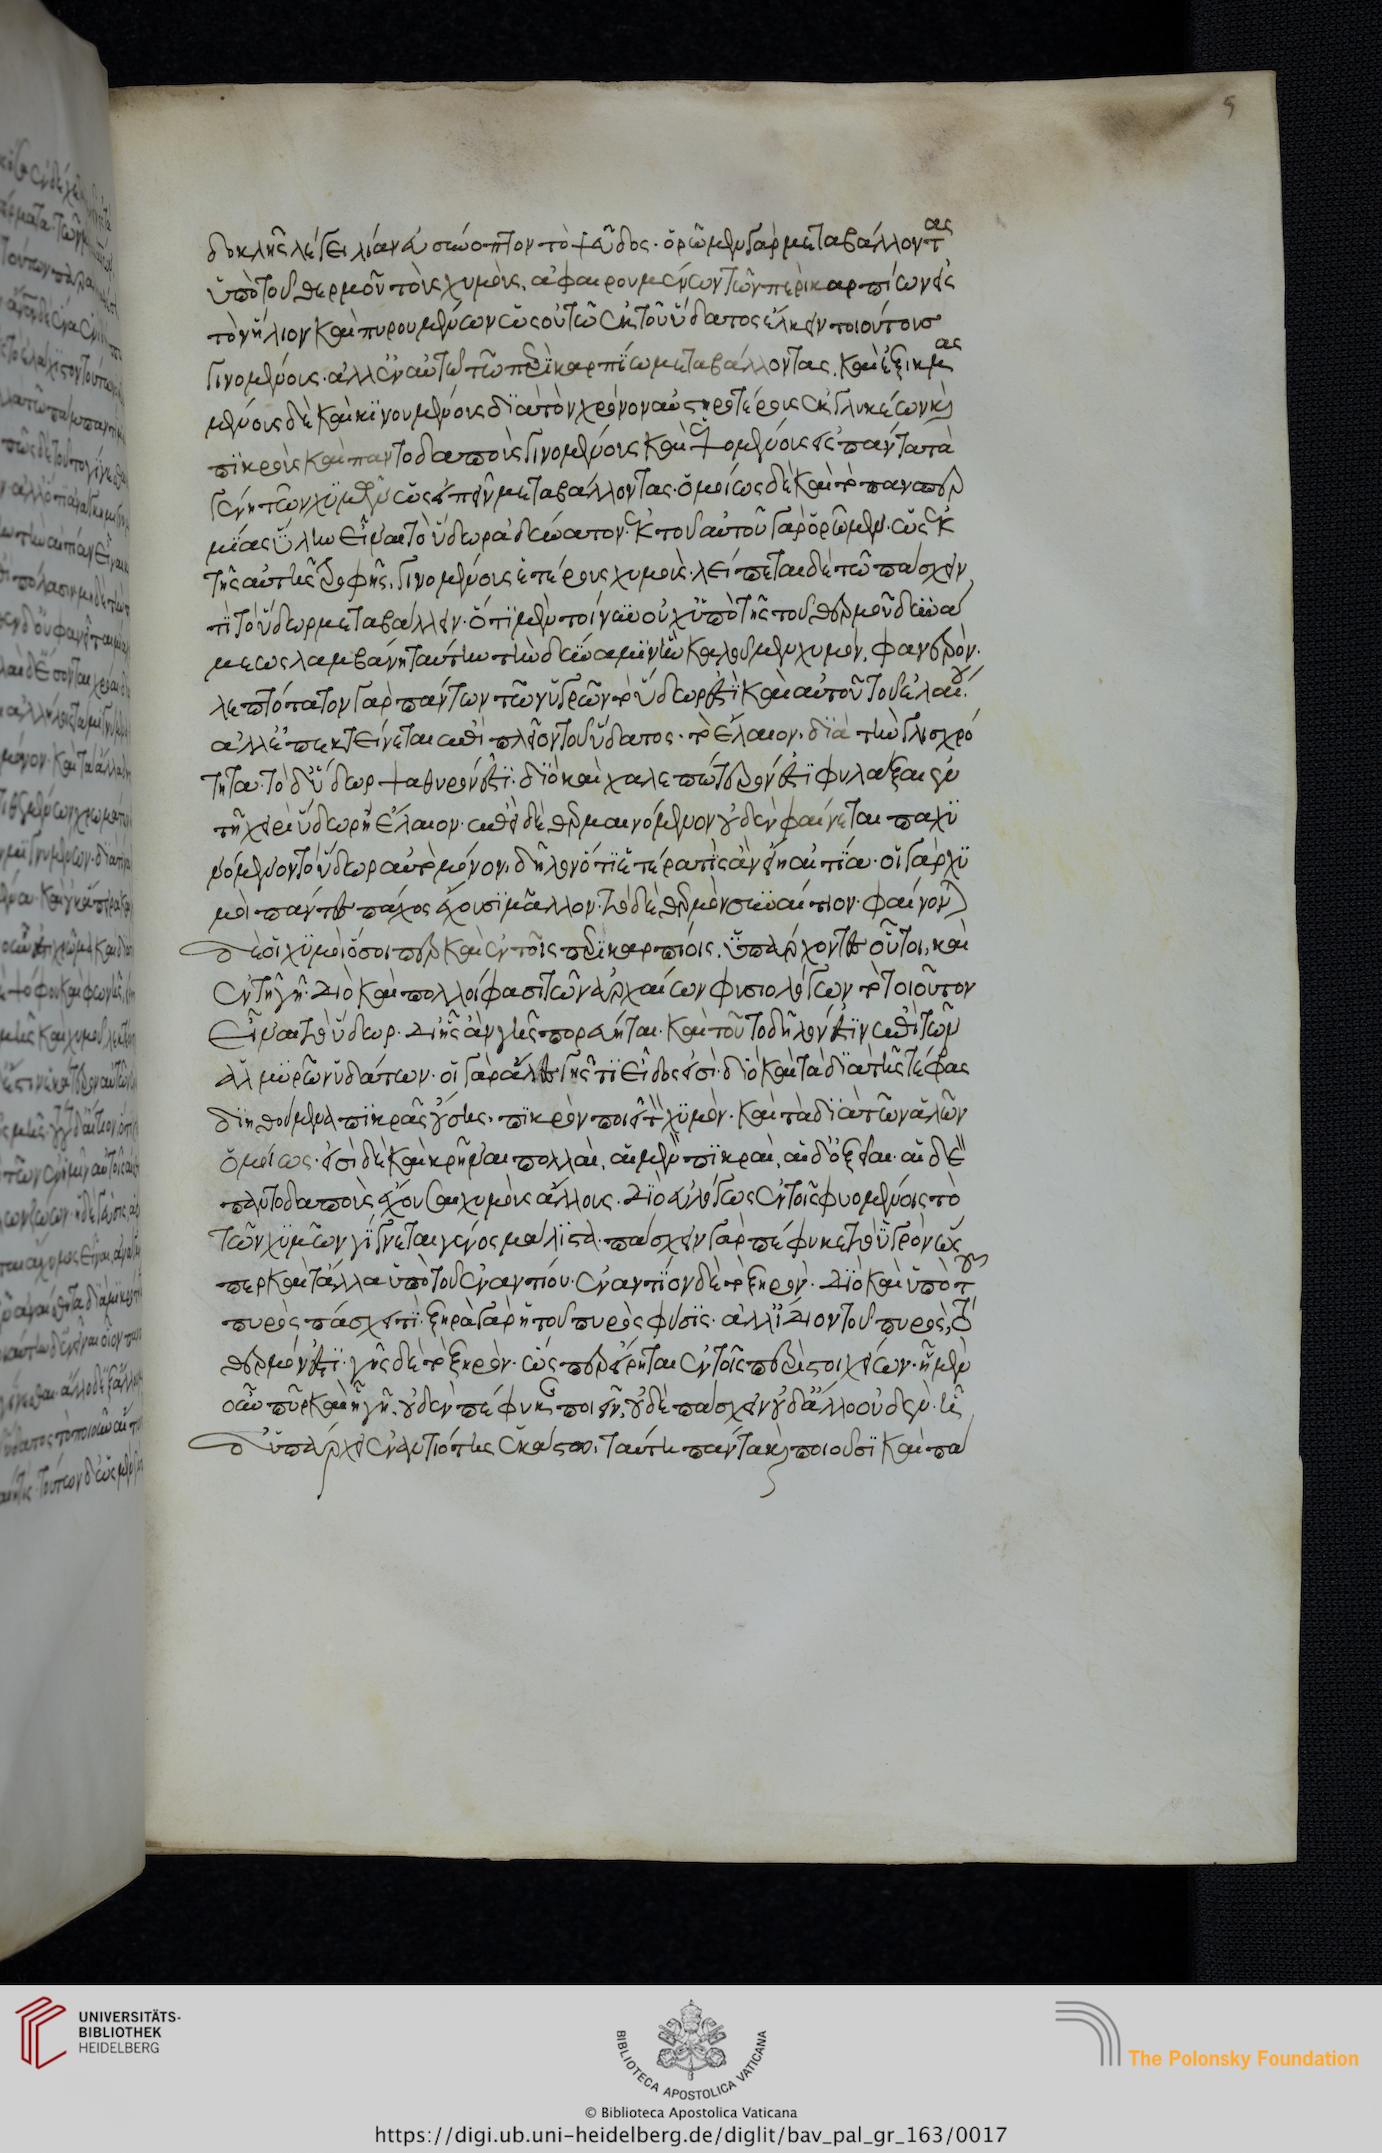 5
δοκλῆς λέγει λίαν εὐσύνοπτον τὸ ψεῦδος· ὁρῶμεν γὰρ μεταβάλλοντας
ὑπὸ τοῦ θερμοῦ τοὺς χυμοὺς, ἀφαιρουμένων τῶν περικαρπίων εἰς
τὸν ἥλιον καὶ πυρουμένων ὡς οὐ τῶ ἐκ τοῦ ὕδατος ἕλκειν τοιούτους
γινομένους· ἀλλ' ἐν αὐτῶ τῶ περικαρπίω μεταβάλλοντας, καὶ ἐξικμαζο
μένους δὲ καὶ κινουμένους διὰ τὸν χρόνον αὐστηροτέρους ἐκ γλυκέων καὶ
πικροὺς καὶ παντοδαποὺς γινομένους καὶ ἑψομένους εἰς πάντα τὰ
γένη τῶν χυμῶν ὡς εἰπεῖν μεταβάλλοντας· ὁμοίως δὲ καὶ τὸ πανσπερ
μίας ὕλην εἶναι τὸ ὕδωρ ἀδύνατον· ἐκ τοῦ αὐτοῦ γὰρ ὁρῶμεν· ὡς ἐκ
τῆς αὐτῆς τροφῆς, γινομένους ἑτέρους χυμοὺς· λείπεται δὲ τῶ πάσχειν
τι τὸ ὕδωρ μεταβάλλειν· ὅτι μὲν τοίνυν οὐχ ὑπὸ τῆς τοῦ θερμοῦ δυνά
μεως λαμβάνει ταύτην τὴν δύναμιν ἣν καλοῦμεν χυμόν, φανερόν·
λεπτότατον γὰρ πάντων τῶν ὑγρῶν τὸ ὕδωρ ἐστὶ καὶ αὐτοῦ τοῦ ἐλαίου·
ἀλλ' ἐπεκτείνεται ἐπὶ πλεῖον τοῦ ὕδατος· τὸ ἔλαιον, διὰ τὴν γλισχρό
τητα· τὸ δ' ὕδωρ ψαθυρόν ἐστι· διὸ καὶ χαλεπώτερόν ἐστι φυλάξαι ἐν
τῆ χειρὶ ὕδωρ ἢ ἔλαιον· ἐπεὶ δὲ θερμαινόμενον οὐδὲν φαίνεται παχυ
νόμενον τὸ ὕδωρ αὐτὸ μόνον, δῆλον ὅτι ἑτέρα τις ἂν εἴη αἰτία· οἱ γὰρ χυ
μοὶ πάντες πάχος ἔχουσι μᾶλλον· τὸ δὲ θερμὸν συναίτιον· φαίνονται
δὲ οἱ χυμοὶ ὅσοι περ καὶ ἐν τοῖς περικαρπίοις, ὑπάρχοντες οὗτοι, καὶ
ἐν τῆ γῆ· διὸ καὶ πολλοί φασι τῶν ἀρχαίων φυσιολόγων τὸ τοιοῦτον
εἶναι τὸ ὕδωρ· δι' ἧς ἂν γῆς πορεύηται· καὶ τοῦτο δῆλόν ἐστιν ἐπὶ τῶν
ἁλμυρῶν ὑδάτων· οἱ γὰρ ἅλες γῆς τι εἶδός εἰσι· διὸ καὶ τὰ διὰ τῆς τέφρας
διηθούμενα πικρᾶς οὔσης, πικρὸν ποιεῖ τὸν χυμόν· καὶ τὰ διὰ τῶν ἁλῶν
ὁμοίως· εἰσὶ δὲ καὶ κρῆναι πολλαὶ, αἱ μὲν πικραὶ, αἱ δ' ὀξεῖαι· αἱ δὲ
παντοδαποὺς ἔχουσαι χυμοὺς ἄλλους· διὸ εὐλόγως ἐν τοῖς φυομένοις τὸ
τῶν χυμῶν γίγνεται γένος μάλιστα· πάσχειν γὰρ πέφυκε τὸ ὑγρὸν ὥς
περ καὶ τἄλλα ὑπὸ τοῦ ἐναντίου· ἐναντίον δὲ τὸ ξηρόν· διὸ καὶ ὑπὸ τοῦ
πυρὸς πάσχει τι· ξηρὰ γὰρ ἡ τοῦ πυρὸς φύσις· ἀλλ' ἴδιον τοῦ πυρὸς, τὸ
θερμόν ἐστι· γῆς δὲ τὸ ξηρόν· ὡς περ εἴρηται ἐν τοῖς περὶ στοιχείων· ἧ μὲν
οὖν πῦρ καὶ ἧ γῆ, οὐδὲν πέφυκε ποιεῖν, οὐδὲ πάσχειν οὐδ' ἄλλο οὐδέν· ἧ
δ' ὑπάρχει ἐναντιότης ἑκάστω, ταύτη πάντα καὶ ποιοῦσι καὶ πά
UNIVERSITÄTS-
BIBLIOTHEK
HEIDELBERG
BIBLIOTECA APOSTOLICA VATICANA
The Polonsky Foundation
© Biblioteca Apostolica Vaticana
https://digi.ub.uni-heidelberg.de/diglit/bav_pal_gr_163/0017